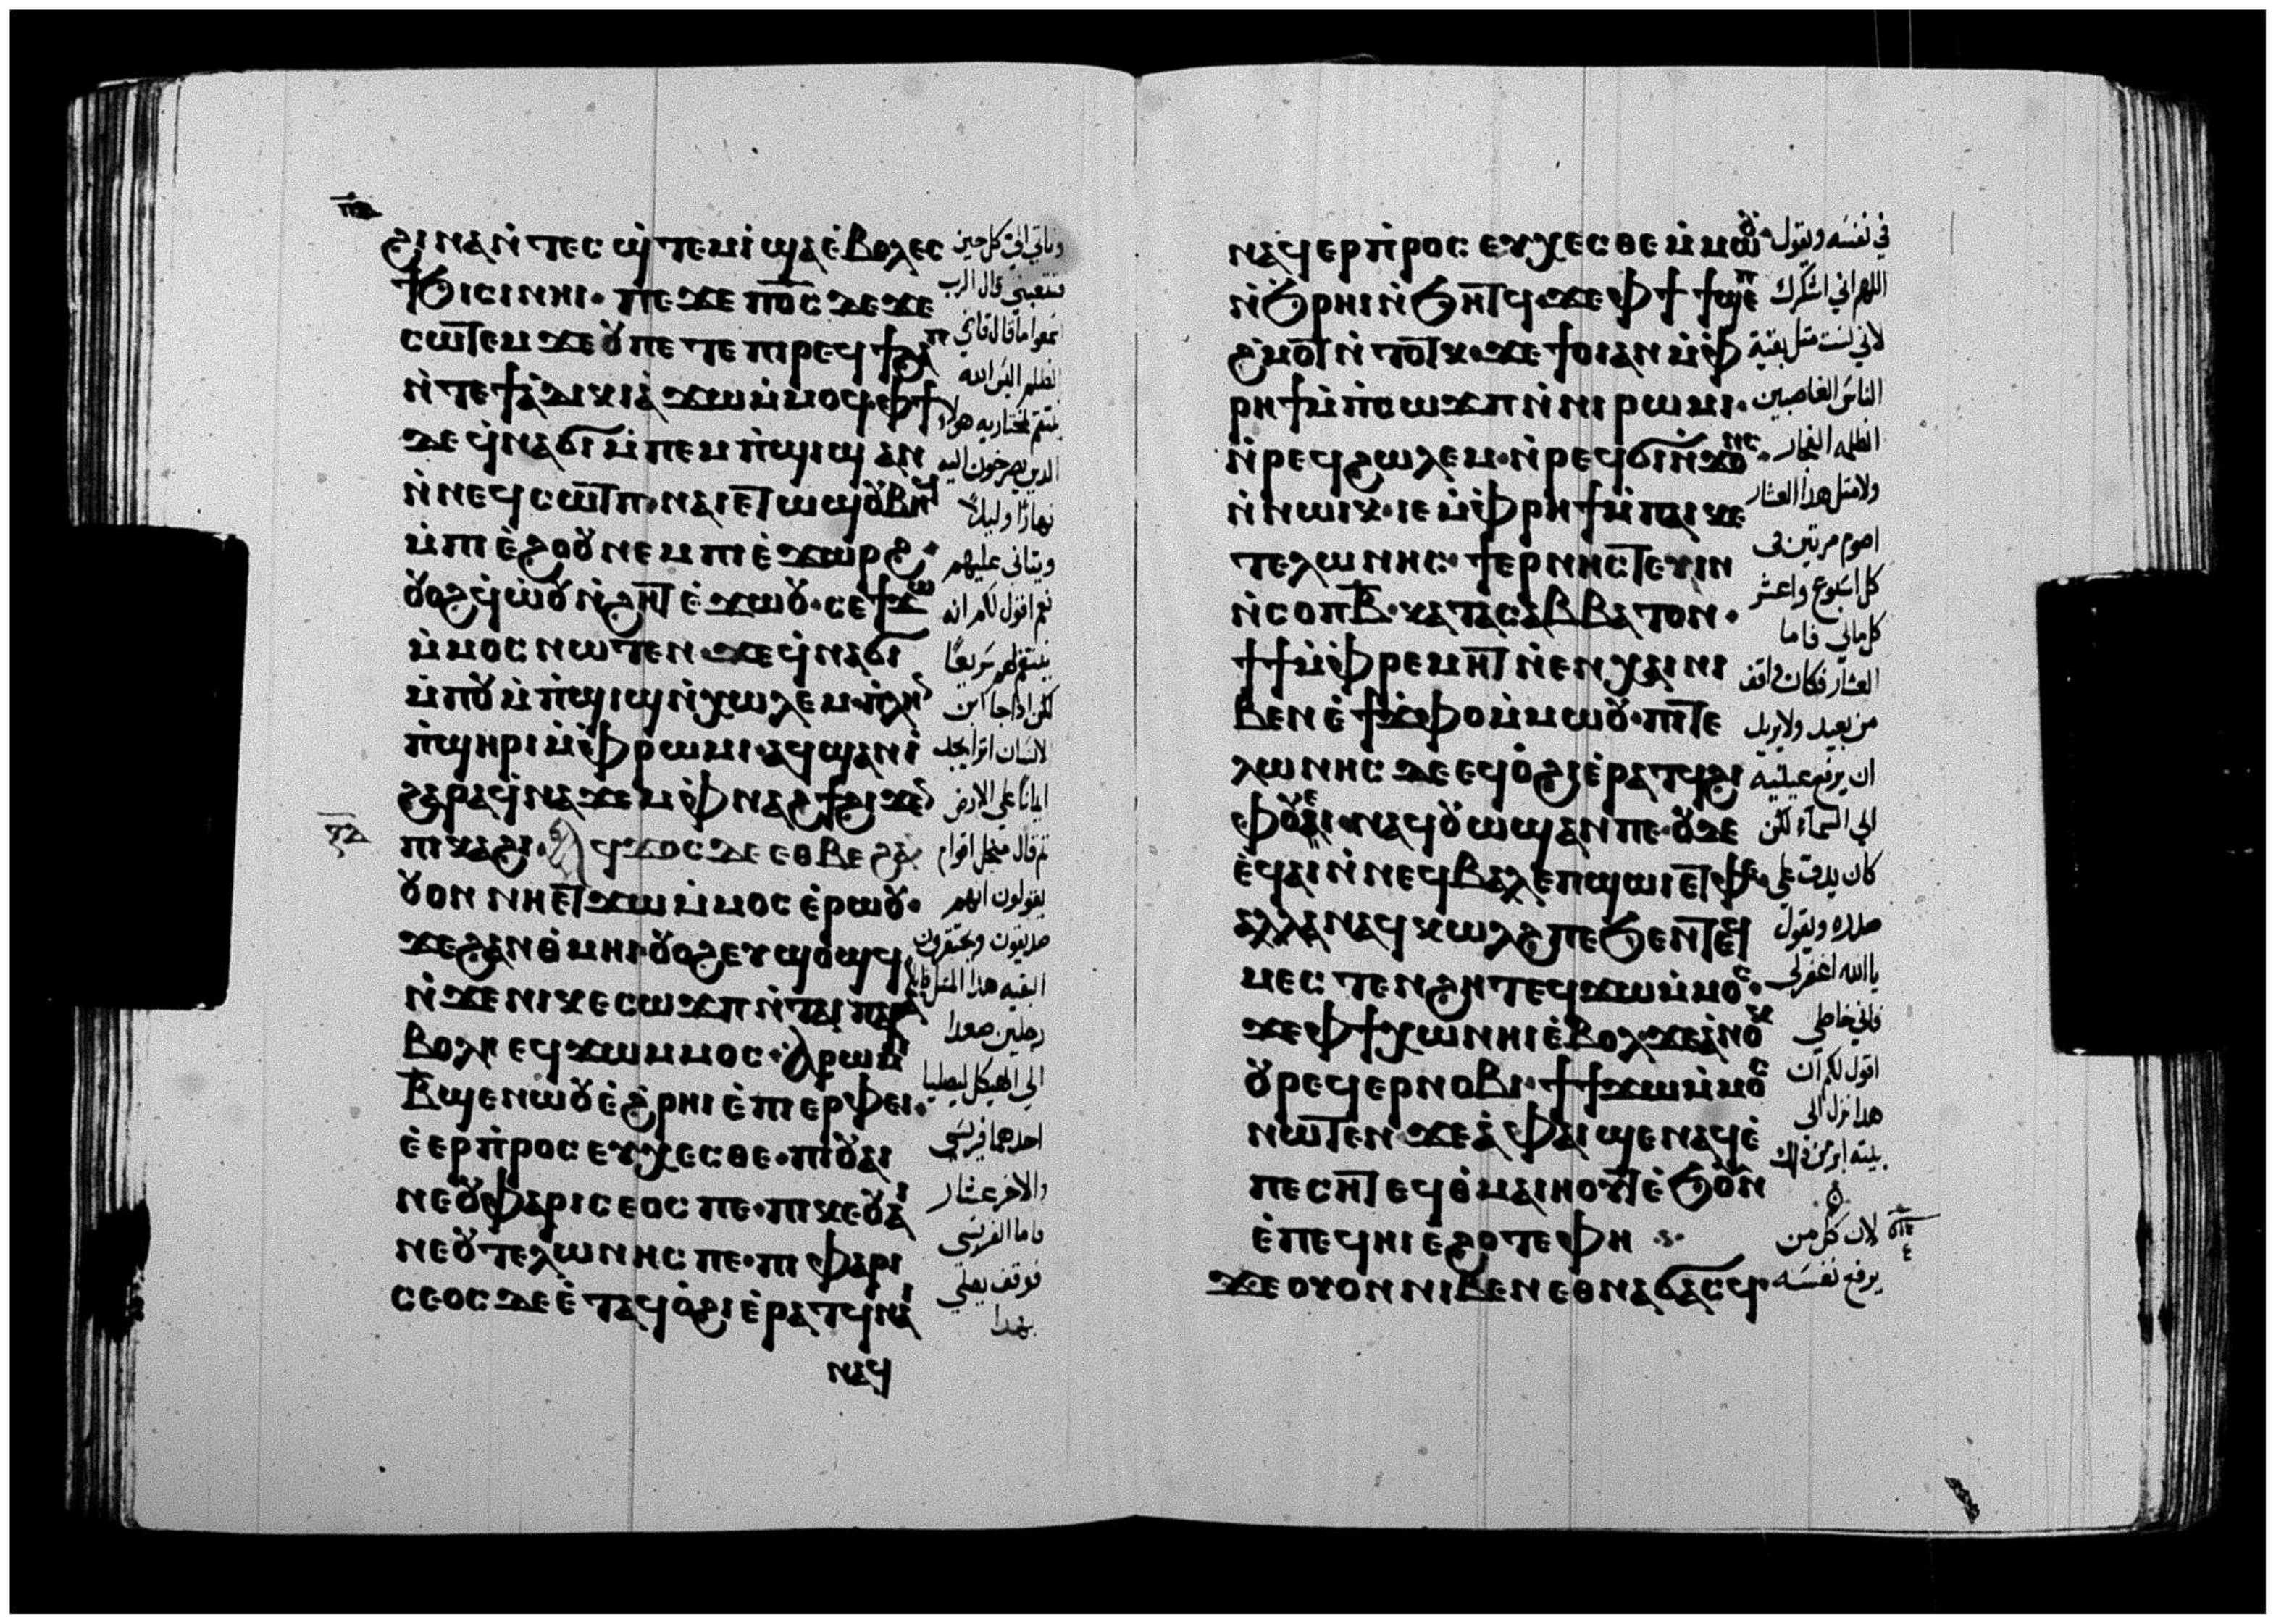 ϩⲓⲛⲁⲛ̀ⲧⲉⲥϣ̀ⲧⲉⲙⲓ̀ϣⲁⲉ̀ⲃⲟⲗⲉⲥ
ϯϧⲓⲥⲓⲛⲏⲓ· ⲡⲉϫⲉ ⲡⲟ̅ⲥ̅ ⲇⲉϫⲉ
ⲥⲱⲧⲉⲙ ϫⲉⲟⲩⲡⲉⲧⲉⲡⲓⲣⲉϥϯϩⲁⲡ
ⲛ̀ⲧⲉϯⲁ̀ⲇⲓⲕⲓⲁ̀ ϫⲱⲙ̀ⲙⲟϥ·ⲫϯ
ⲇⲉ ϥ̀ⲛⲁϭⲓ ⲙ̀ⲡⲉⲙⲡ̀ϣⲓϣ ⲁⲛ
ⲛ̀ⲛⲉϥⲥⲱⲧⲡ·ⲛⲁⲓⲉⲧⲱϣⲟⲩⲃⲏϥ
ⲙ̀ⲡⲓⲉ̀ϩⲟⲟⲩ ⲛⲉⲙ ⲡⲓⲉ̀ϫⲱⲣϩ·
ⲟⲩⲟϩϥ̀ⲱ̀ⲟⲩⲛ̀ϩⲏⲧ ⲉ̀ϫⲱⲟⲩ·ⲥⲉϯϫⲱ
ⲙ̀ⲙⲟⲥ ⲛⲱⲧⲉⲛ·ϫⲉϥ̀ⲛⲁϭⲓ
ⲙ̀ⲡⲟⲩⲙ̀ⲡ̀ϣⲓϣⲛ̀ⲭⲱⲗⲉⲙ·ⲡ̀ⲗⲏⲛ
ⲡ̀ϣⲏⲣⲓ ⲙ̀ⲫⲣⲱⲙⲓ·ⲁϥϣⲁⲛⲓ̀
ϩⲁⲣⲁϥ̀ⲛⲁϫⲉⲙ ⲫⲛⲁϩϯϩⲓϫⲉⲛ
ⲡⲓⲕⲁϩⲓ· ⲁϥϫⲟⲥ ⲇⲉ ⲉⲑⲃⲉ ϩⲁⲛ
ⲟⲩⲟⲛ ⲛⲏⲉⲧϫⲱⲙ̀ⲙⲟⲥ ⲉ̀ⲣⲱⲟⲩ·
ϫⲉϩⲁⲛⲑ̀ⲙⲏⲓ·ⲟⲩⲟϩⲉⲩϣⲟϣϥ
ⲛ̀ϫⲉⲛⲓⲕⲉⲥⲱϫⲡ ⲛ̀ⲧⲁⲓⲡⲁⲣⲁ
ⲃⲟⲗⲏ ⲉϥϫⲱⲙⲙⲟⲥ·ⲁⲣⲱⲙⲓ
ⲃ̅ϣⲉⲛⲱⲟⲩⲉ̀ϩ̀ⲣⲏⲓ ⲉ̀ⲡⲓⲉⲣⲫⲉⲓ·
ⲉ̀ⲉⲣⲡ̀ⲣⲟⲥⲉⲩⲭⲉⲥⲑⲉ·ⲡⲓⲟⲩⲁⲓ
ⲛⲉⲟⲩⲫⲁⲣⲓⲥⲉⲟⲥ ⲡⲉ·ⲡⲓⲕⲉⲟⲩⲁⲓ
ⲛⲉⲟⲩⲧⲉⲗⲱⲛⲏⲥ ⲡⲉ·ⲡⲓⲫⲁⲣⲓ
ⲥⲉⲟⲥ ⲇⲉ ⲉ̀ⲧⲁϥⲟ̀ϩⲓ ⲉ̀ⲣⲁⲧϥ ⲛⲁⲓ
ⲛⲁϥ
وتاتي الي كل حين
فتتعبني قال الرب
الظلم اليس الله
الذين يصرخون اليه
نهارًا وليلًا
ويتانى عليهم
نعم اقول لكم انه
ينتقم لهم سريعًا
لكن اذا جا ابن
الانسان اترا يجد
ايمانًا على الارض
ثم قال من اجل اقوام
يقولون انهم
صديقون ويحتقرون
رجلين صعدا
الي الهيكل ليصليا
احدهما فريسي
والاخر عشار
فاما الفريسي
فوقف يصلي
بهذا
ⲛⲁϥⲉⲣⲡ̀ⲣⲟⲥⲉⲩⲭⲉⲥⲑⲉ ⲙ̀ⲙⲱⲟⲩ
ⲛ̀ϧⲣⲏⲓ ⲛ̀ϧⲏⲧϥ·ϫⲉ ⲫϯ ϯϣⲉⲡ
ϩ̀ⲙⲟⲧ ⲛ̀ⲧⲟⲧⲕ·ϫⲉ ϯⲟⲓ ⲁⲛ ⲙ̀ⲫ
ⲣⲏϯ ⲙ̀ⲡⲥⲱϫⲡ ⲛ̀ⲛⲓⲣⲱⲙⲓ·
ⲛ̀ⲣⲉϥϩⲱⲗⲉⲙ·ⲛ̀ⲣⲉϥϭⲓⲛ̀ϫⲟⲛⲥ·
ⲛ̀ⲛⲱⲓⲕ·ⲓⲉ ⲙ̀ⲫⲣⲏϯ ⲙ̀ⲡⲁⲓⲕⲉ
ⲧⲉⲗⲱⲛⲏⲥ· ϯⲉⲣⲛⲏⲥⲧⲉⲩⲓⲛ
ⲛ̀ⲥⲟⲡ ⲃ̅·ⲕⲁⲧⲁ ⲥⲁⲃⲃⲁⲧⲟⲛ·
ϯϯⲙ̀ⲫⲣⲉⲙⲏⲧ ⲛ̀ⲉⲛⲭⲁⲓⲛⲓ
ⲃⲉⲛ ⲉ̀ϯϫ̀ⲫⲟⲙ̀ⲙⲱⲟⲩ·ⲡⲓⲧⲉ
ⲗⲱⲛⲏⲥ ⲇⲉ ⲉϥⲟ̀ϩⲓ ⲉ̀ⲣⲁⲧϥ ϩⲓ
ⲫⲟⲩⲉⲓ·ⲛⲁϥⲟⲩⲱϣ ⲁⲛ ⲡⲉ·ⲟⲩⲇⲉ
ⲉ̀ϥⲁⲓ ⲛ̀ⲛⲉϥⲃⲁⲗ ⲉⲡϣⲱⲓ ⲉ̀ⲧⲫⲉ·
ⲁⲗⲗⲁ ⲛⲁϥⲕⲱⲗϩ ⲡⲉ ϧⲉⲛ ⲧⲉϥ
ⲙⲉⲥⲧⲉⲛϩⲏⲧ ⲉϥϫⲱⲙ̀ⲙⲟⲥ·
ϫⲉ ⲫϯ ⲭⲱ ⲛⲏⲓ ⲉ̀ⲃⲟⲗ·ϫⲉⲁ̀ⲛⲟⲕ
ⲟⲩⲣⲉϥⲉⲣⲛⲟⲃⲓ·ϯϯϫⲱⲙ̀ⲙⲟⲥ
ⲛⲱⲧⲉⲛ ϫⲉⲁ̀ ⲫⲁⲓ ϣⲉⲛⲁϥ ⲉ̀
ⲡⲉⲥⲏⲧ ⲉϥⲑ̀ⲙⲁⲓⲏⲟⲩⲧ ⲉ̀ϧⲟⲩⲛ
ⲉ̀ⲡⲉϥⲏⲓ ⲉϩⲟⲧⲉ ⲫⲏ
ϫⲉ ⲟⲩⲟⲛ ⲛⲓⲃⲉⲛ ⲉⲑⲛⲁϭⲁⲥϥ·
في نفسه ويقول
اللهم اني اشكرك
لاني لست مثل بقية
الناس الغاصبين
الظلمه الفجار
ولا مثل هذا العشار
اصوم مرتين في
كل اسبوع واعشر
كل مالي فاما
العشار فكان واقف
من بعيد ولا يريد
ان يرفع عينيه
الي السماء لكن
كان يدق على
صدره ويقول
يا الله اغفر لي
فاني خاطي
اقول لكم ان
هذا نزل الى
بيته ابر من ذاك
لان كل من
يرفع نفسه